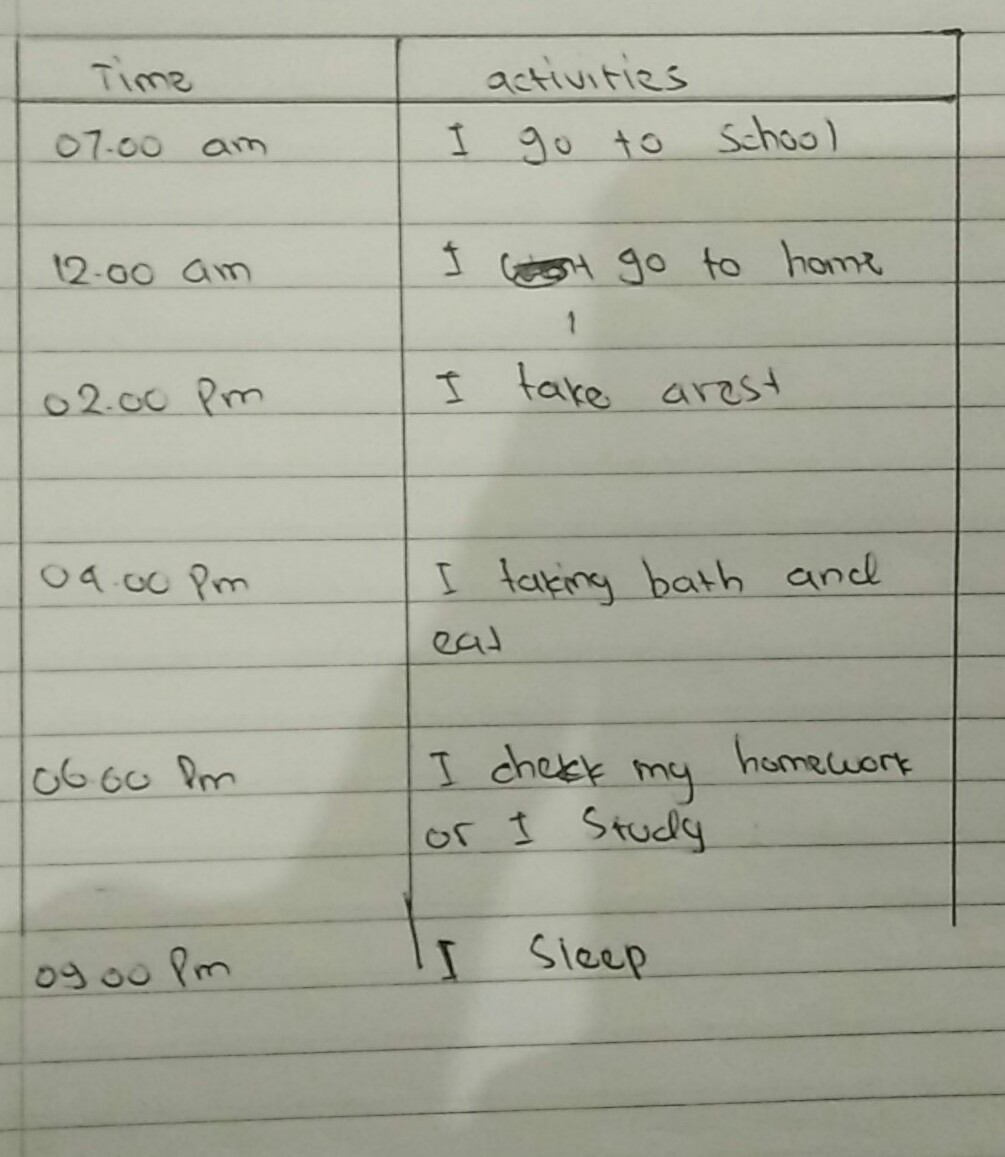 Time activities
07.00 am I go to school
12.00 am I go to home
02.00 Pm I take arest
04.00 Pm I taking bath and
eat
06.00 Pm I check my homework
or I Study
09.00 Pm I Sleep